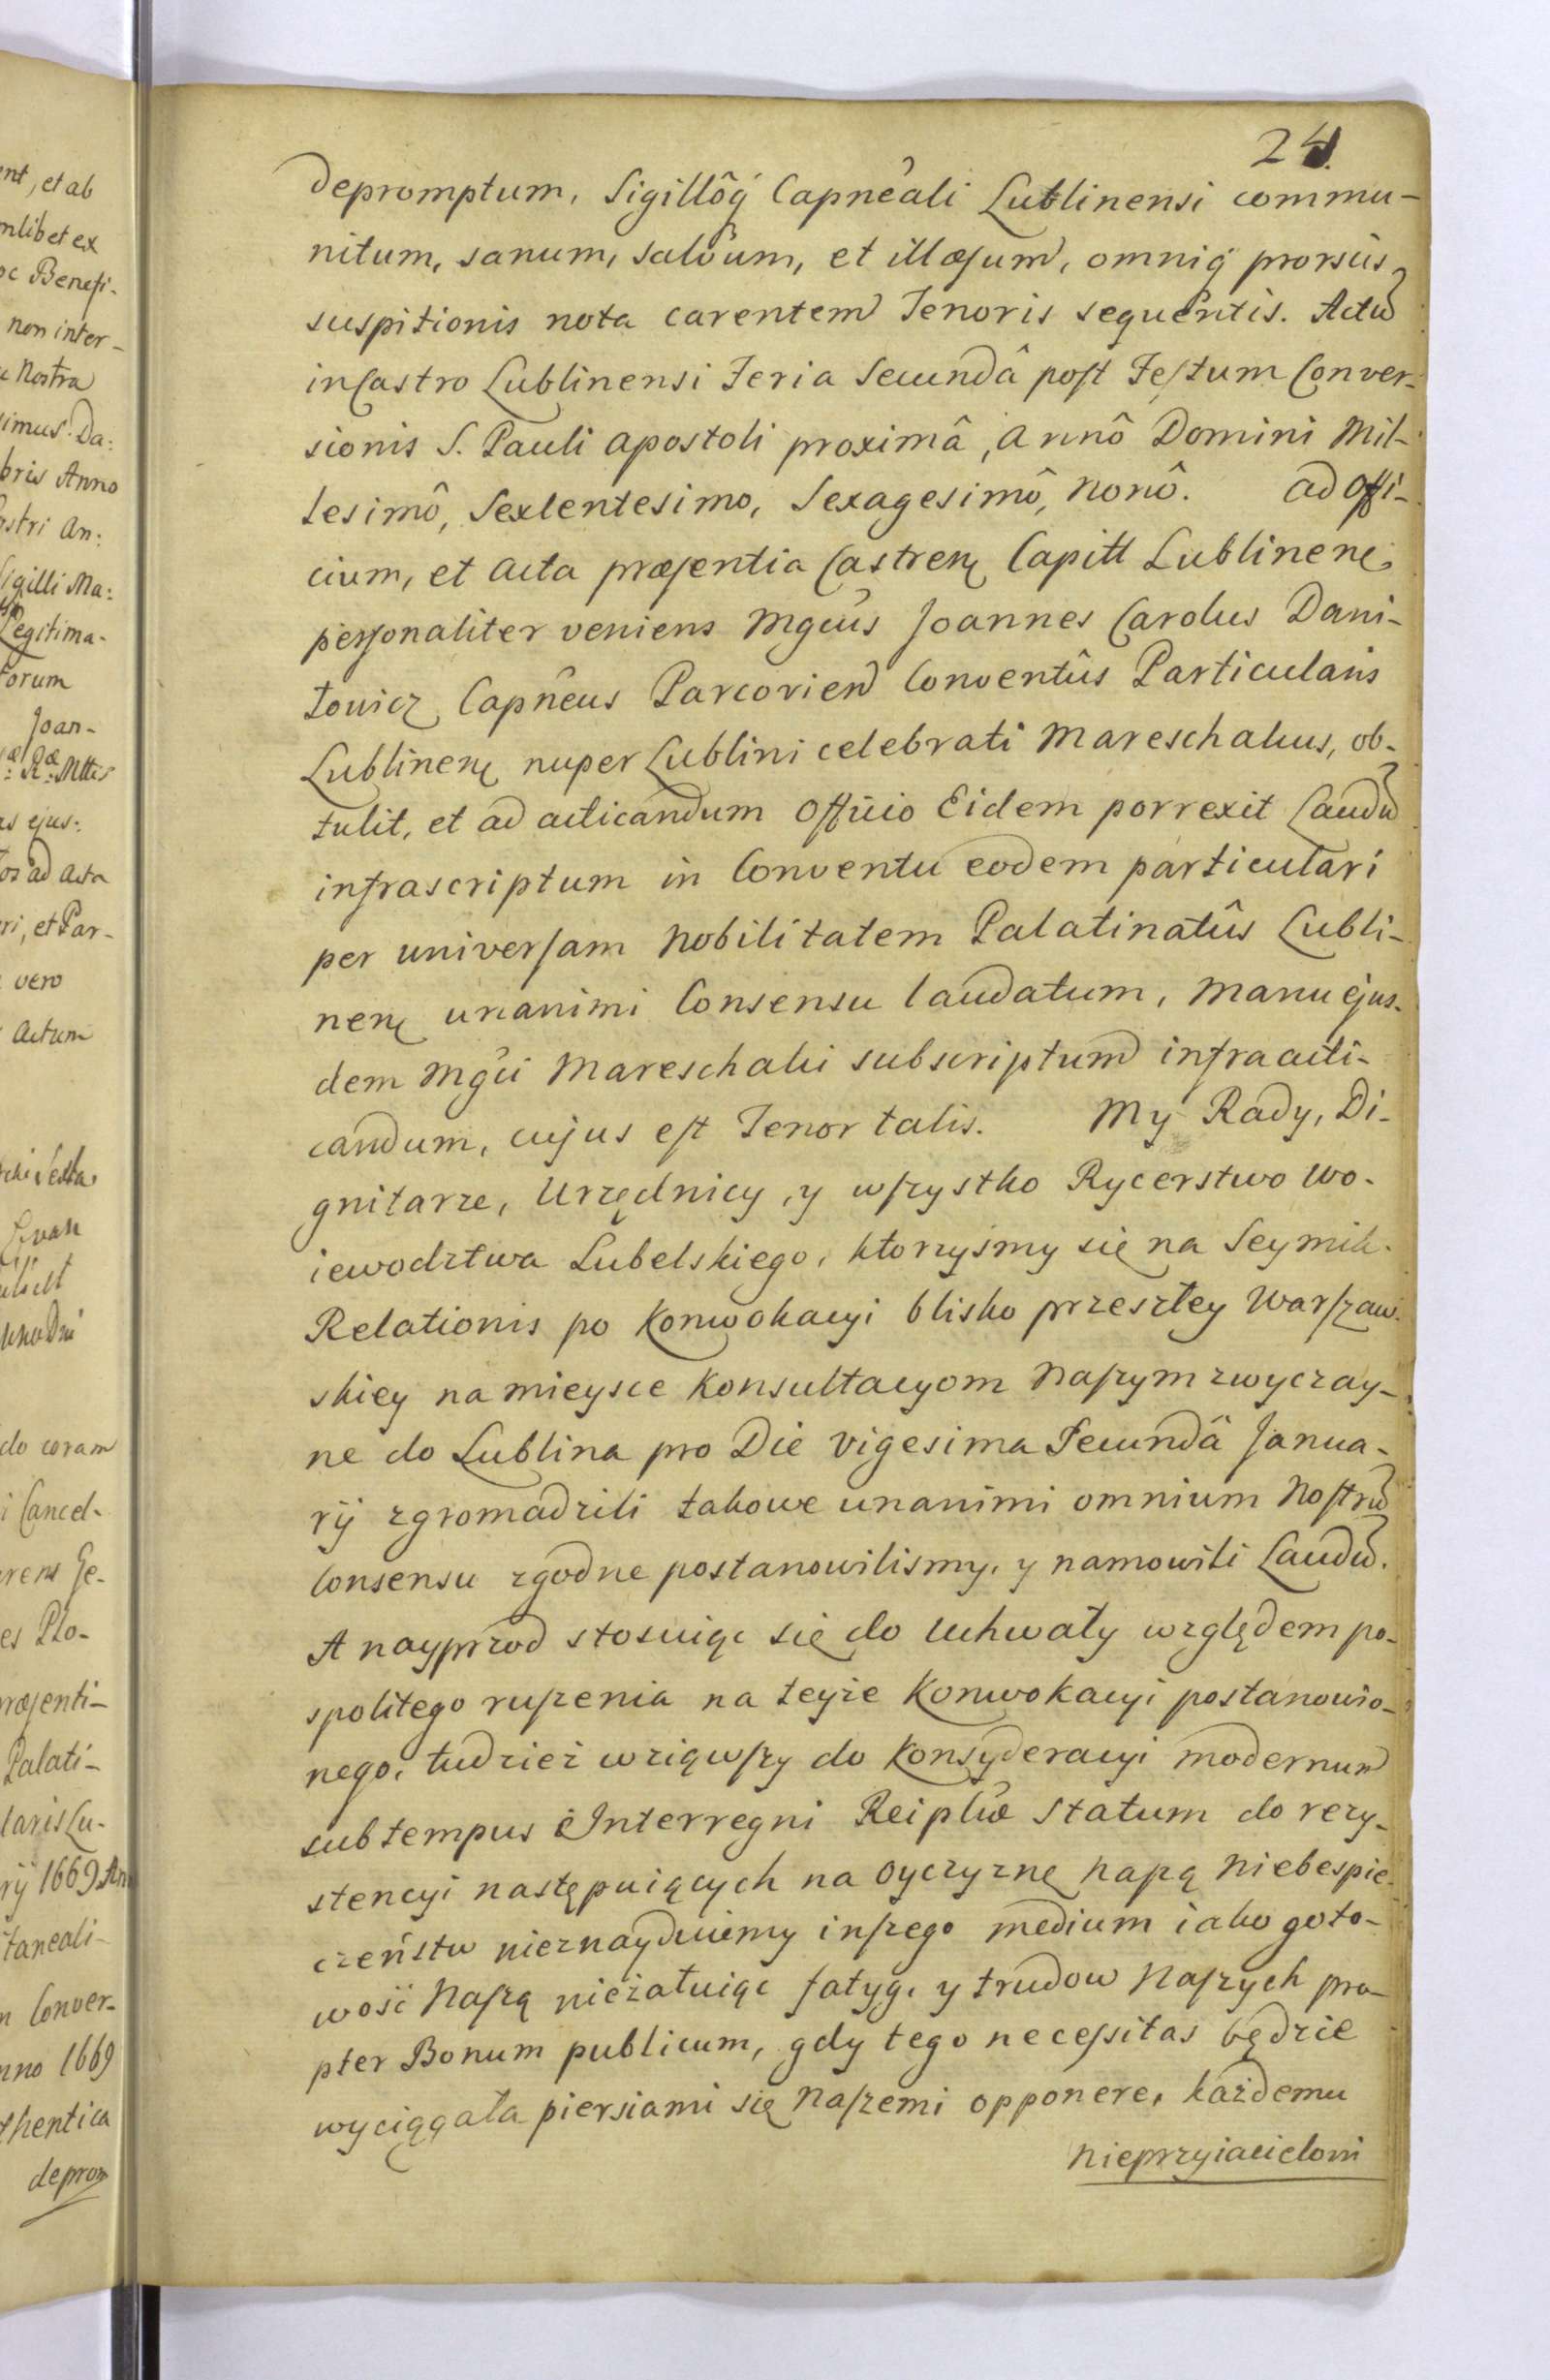 24.
depromptum, Sigillôq̃ Capnêali Lublinensi commu-
nitum, sanum, salvum, et illæsum, omniq̃ prorsus
suspitionis nota carentem Tenoris sequentis. Actũ
in Castro Lublinensi Feria Secundâ post Festum Conver-
sionis S. Pauli apostoli proximâ, annô Domini Mil-
lesimô, Sexcentesimo, Sexagesimô, Nonô. ad Offi-
cium, et acta præsentia Castren̨ Capitt Lublinen̨
personaliter veniens Mgcûs Joannes Carolus Dani-
łowicz Capnêus Parcovien̄ Conventûs Particularis
Lublinen̨ nuper Lublini celebrati Mareschalus, ob-
tulit, et ad acticandum Officio Eidem porrexit Laudũ
infrascriptum in Conventu eodem particulari
per universam Nobilitatem Palatinatûs Lubli-
nen̨ unanimi Consensu laudatum, manu ejus-
dem Mgci Mareschali subscriptum infra acti-
candum, cujus est Tenor talis. My Rady, Di-
gnitarze, Urzędnicy, y wszystko Rycerstwo Wo-
iewodztwa Lubelskiego, ktorzyśmy się na Seymik
Relationis po Konwokacyi blisko przeszłey Warszaw-
skiey na mieysce Konsultacyom Naszym zwyczay-
ne do Lublina pro Die vigesima Secundâ Janua-
rij zgromadzili takowe unanimi omnium Nostrũ
Consensu zgodne postanowilismy, y namowili Laudũ.
A nayprzod stosuiąc się do Uchwały względem po-
spolitego ruszenia na teyże Konwokacyi postanowio-
nego, tudzież wziąwszy do Konsyderacyi modernum
sub tempus Interregni Reiplicæ Statum do rezy-
stencyi następuiących na Oyczyznę naszą Niebespie-
czeństw nieznayduiemy inszego medium iako goto-
wość Naszą nieżałuiąc fatyg, y trudow Naszych pro-
pter Bonum publicum, gdy tego necessitas będzie
wyciągała piersiami się Naszemi opponere, każdemu
Nieprzyiacielowi